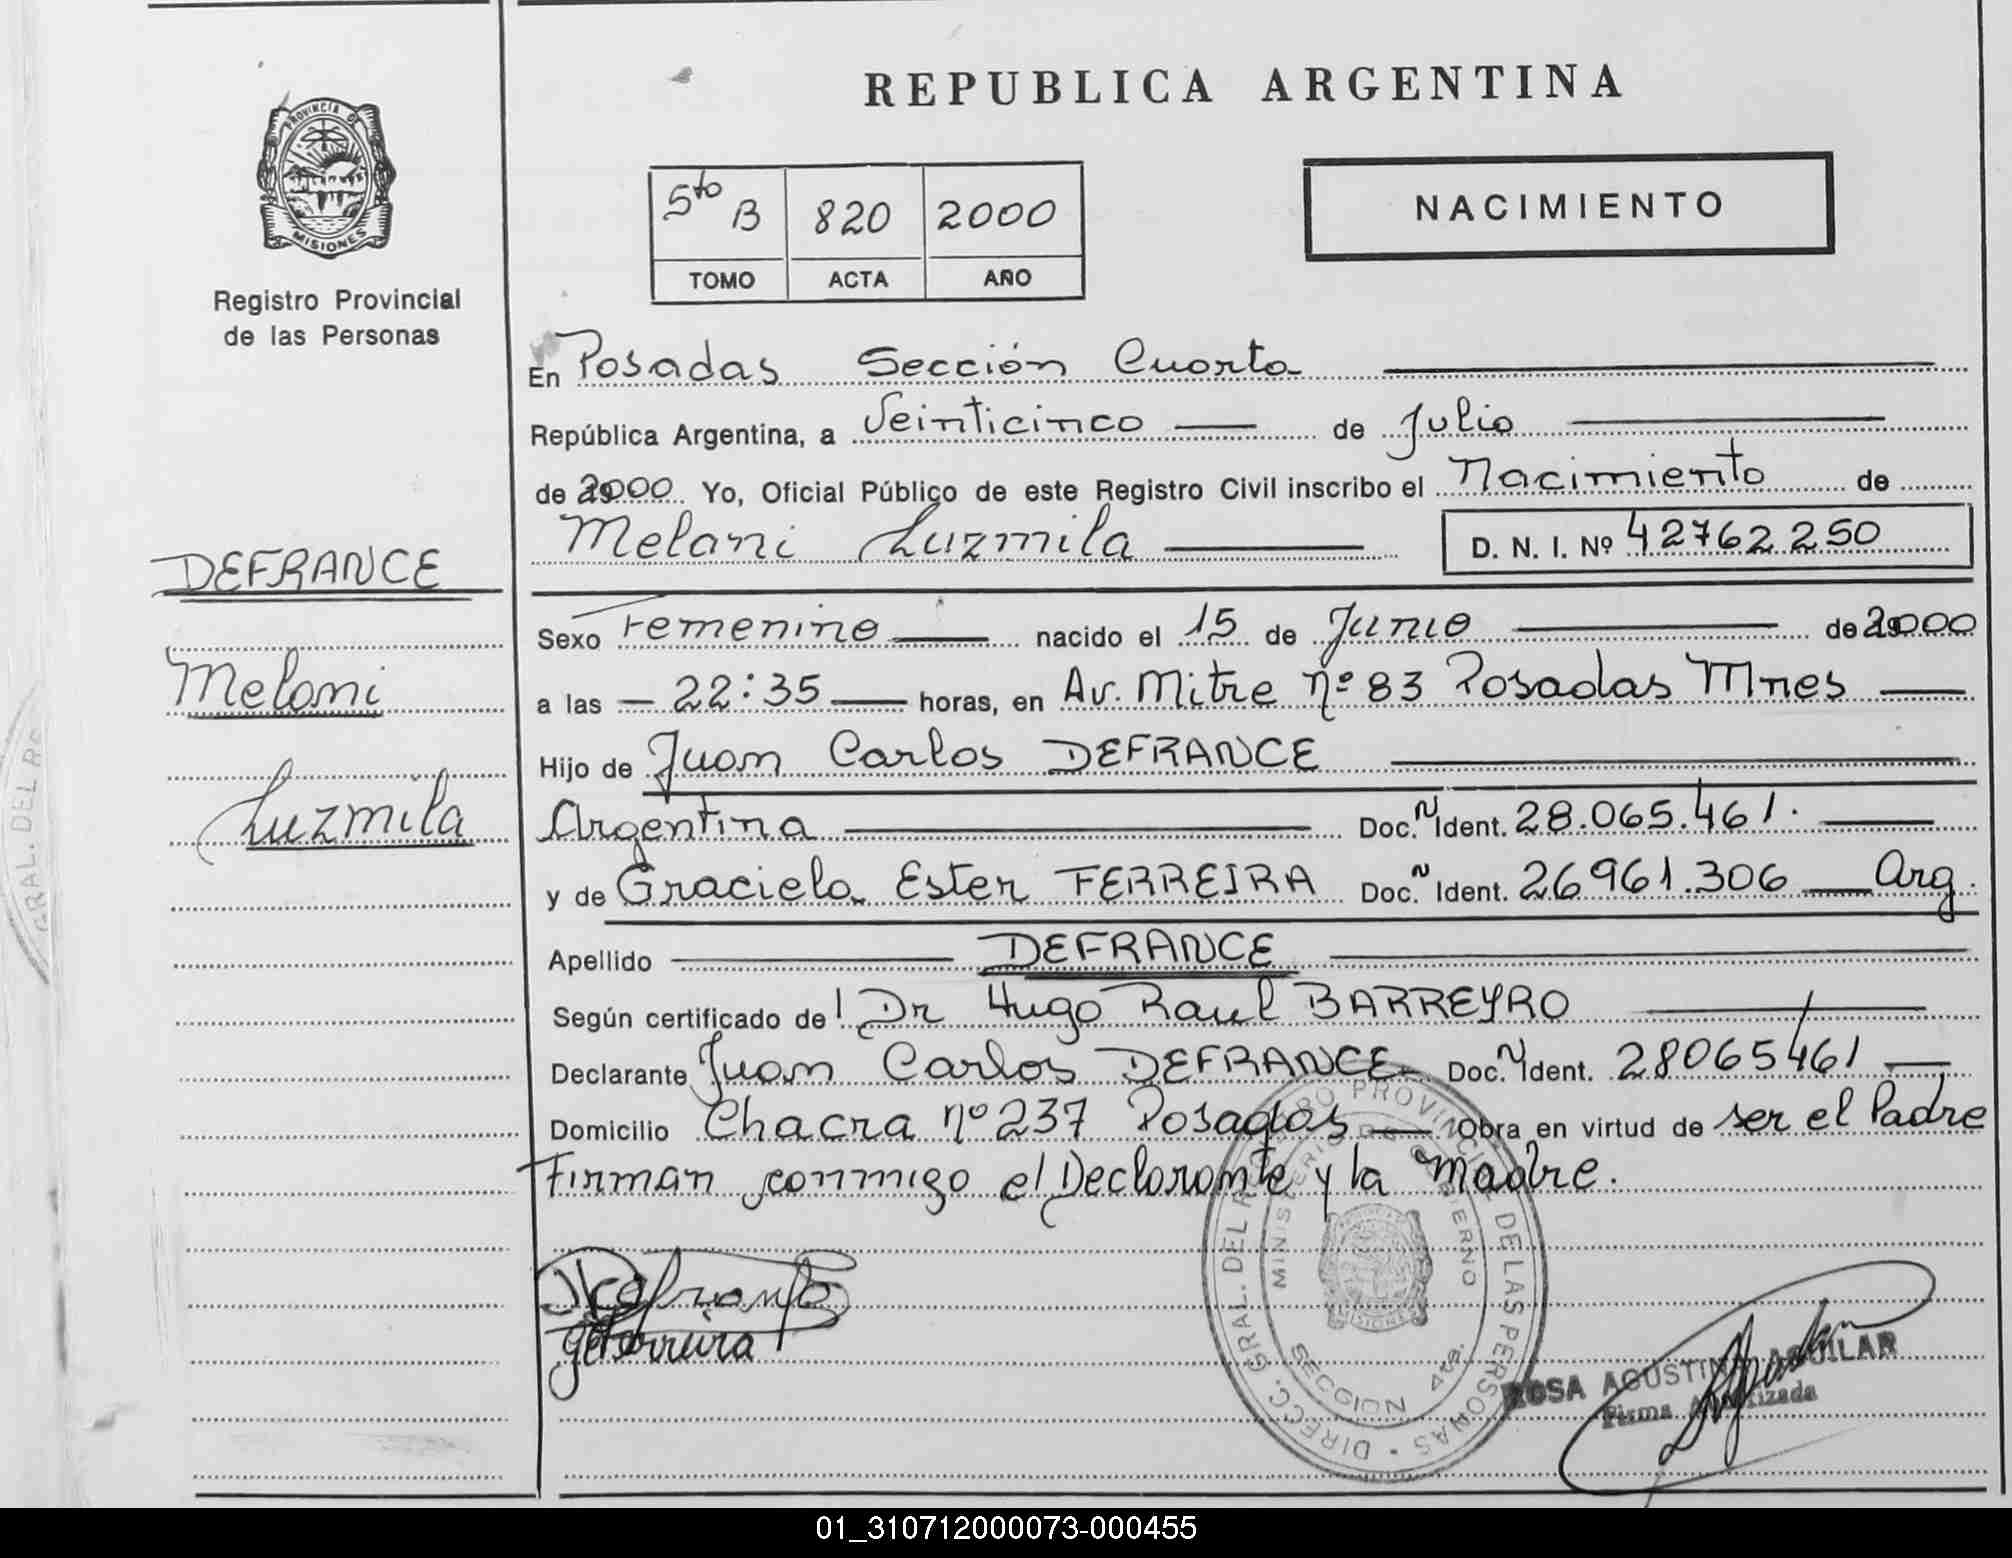 REPUBLICA ARGENTINA
PROVINCIA DE
MISIONES
Registro Provincial
de las Personas
5to B 820 2000
TOMO ACTA AÑO
NACIMIENTO
En Posadas Sección Cuarta
República Argentina, a Veinticinco de Julio
de 2000 Yo, Oficial Público de este Registro Civil inscribo el Nacimiento de
Melani Luzmila D. N. I. Nº 42762250
DEFRANCE
Melani
Luzmila
Sexo Femenino nacido el 15 de Junio de 2000
a las 22:35 horas, en Av. Mitre nº 83 Posadas Mnes
Hijo de Juan Carlos DEFRANCE
Argentina Doc. N Ident. 28.065.461.
y de Graciela Ester FERREIRA Doc. N Ident. 26961.306 Arg.
Apellido DEFRANCE
Según certificado del Dr Hugo Raul BARREYRO
Declarante Juan Carlos DEFRANCE Doc. N Ident. 28065461
Domicilio Chacra nº 237 Posadas Obra en virtud de ser el Padre
Firman conmigo el Declarante y la Madre.
DIRECC. GRAL. DEL REGISTRO PROVINCIAL DE LAS PERSONAS
MINISTERIO DE GOBIERNO
SECCION 4ta.
MISIONES
ROSA AGUSTINA AGUILAR
Firma Autorizada
GRAL. DEL
01_310712000073-000455